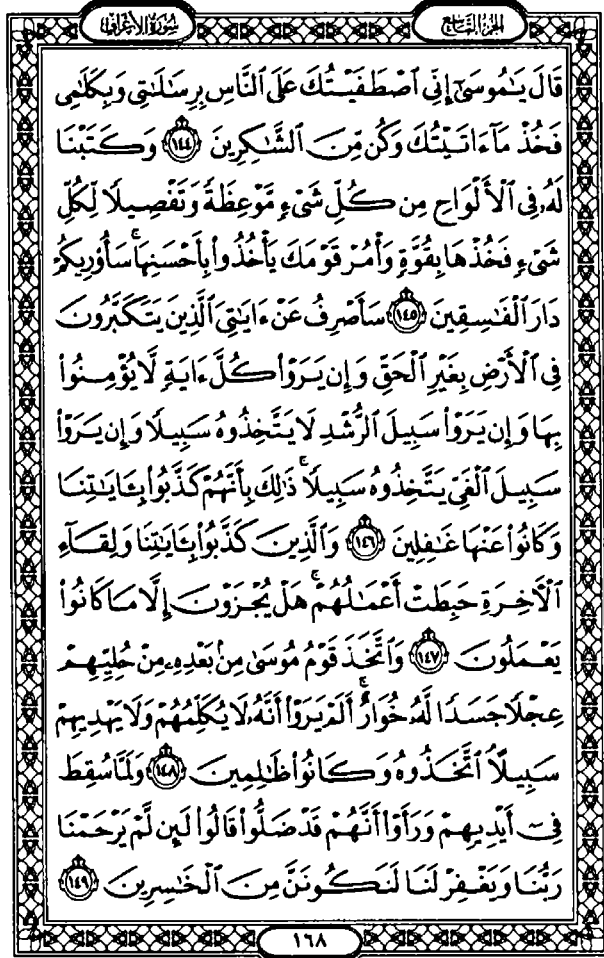 سُورَةُ الأَعْرَافِ
الجُزْءُ التَّاسِعُ
قَالَ يَٰمُوسَىٰٓ إِنِّي ٱصۡطَفَيۡتُكَ عَلَى ٱلنَّاسِ بِرِسَٰلَٰتِي وَبِكَلَٰمِي
فَخُذۡ مَآ ءَاتَيۡتُكَ وَكُن مِّنَ ٱلشَّٰكِرِينَ ١٤٤ وَكَتَبۡنَا
لَهُۥ فِي ٱلۡأَلۡوَاحِ مِن كُلِّ شَيۡءٖ مَّوۡعِظَةٗ وَتَفۡصِيلٗا لِّكُلِّ
شَيۡءٖ فَخُذۡهَا بِقُوَّةٖ وَأۡمُرۡ قَوۡمَكَ يَأۡخُذُواْ بِأَحۡسَنِهَاۚ سَأُوْرِيكُمۡ
دَارَ ٱلۡفَٰسِقِينَ ١٤٥ سَأَصۡرِفُ عَنۡ ءَايَٰتِيَ ٱلَّذِينَ يَتَكَبَّرُونَ
فِي ٱلۡأَرۡضِ بِغَيۡرِ ٱلۡحَقِّ وَإِن يَرَوۡاْ كُلَّ ءَايَةٖ لَّا يُؤۡمِنُواْ
بِهَا وَإِن يَرَوۡاْ سَبِيلَ ٱلرُّشۡدِ لَا يَتَّخِذُوهُ سَبِيلٗا وَإِن يَرَوۡاْ
سَبِيلَ ٱلۡغَيِّ يَتَّخِذُوهُ سَبِيلٗاۚ ذَٰلِكَ بِأَنَّهُمۡ كَذَّبُواْ بِـَٔايَٰتِنَا
وَكَانُواْ عَنۡهَا غَٰفِلِينَ ١٤٦ وَٱلَّذِينَ كَذَّبُواْ بِـَٔايَٰتِنَا وَلِقَآءِ
ٱلۡأٓخِرَةِ حَبِطَتۡ أَعۡمَٰلُهُمۡۚ هَلۡ يُجۡزَوۡنَ إِلَّا مَا كَانُواْ
يَعۡمَلُونَ ١٤٧ وَٱتَّخَذَ قَوۡمُ مُوسَىٰ مِنۢ بَعۡدِهِۦ مِنۡ حُلِيِّهِمۡ
عِجۡلٗا جَسَدٗا لَّهُۥ خُوَارٌۚ أَلَمۡ يَرَوۡاْ أَنَّهُۥ لَا يُكَلِّمُهُمۡ وَلَا يَهۡدِيهِمۡ
سَبِيلًاۘ ٱتَّخَذُوهُ وَكَانُواْ ظَٰلِمِينَ ١٤٨ وَلَمَّا سُقِطَ
فِيٓ أَيۡدِيهِمۡ وَرَأَوۡاْ أَنَّهُمۡ قَدۡ ضَلُّواْ قَالُواْ لَئِن لَّمۡ يَرۡحَمۡنَا
رَبُّنَا وَيَغۡفِرۡ لَنَا لَنَكُونَنَّ مِنَ ٱلۡخَٰسِرِينَ ١٤٩
١٦٨